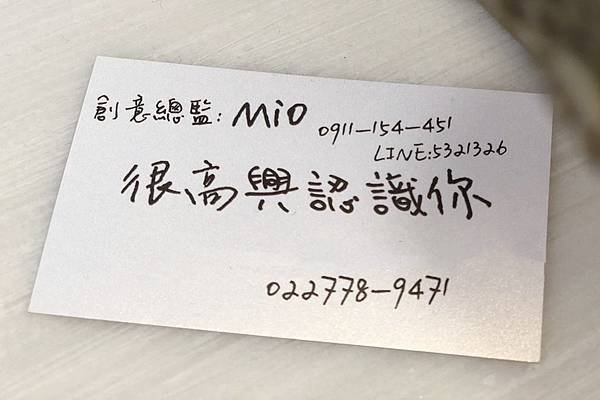 創意總監: Mio
0911-154-451
LINE:5321326
很高興認識你
022778-9471